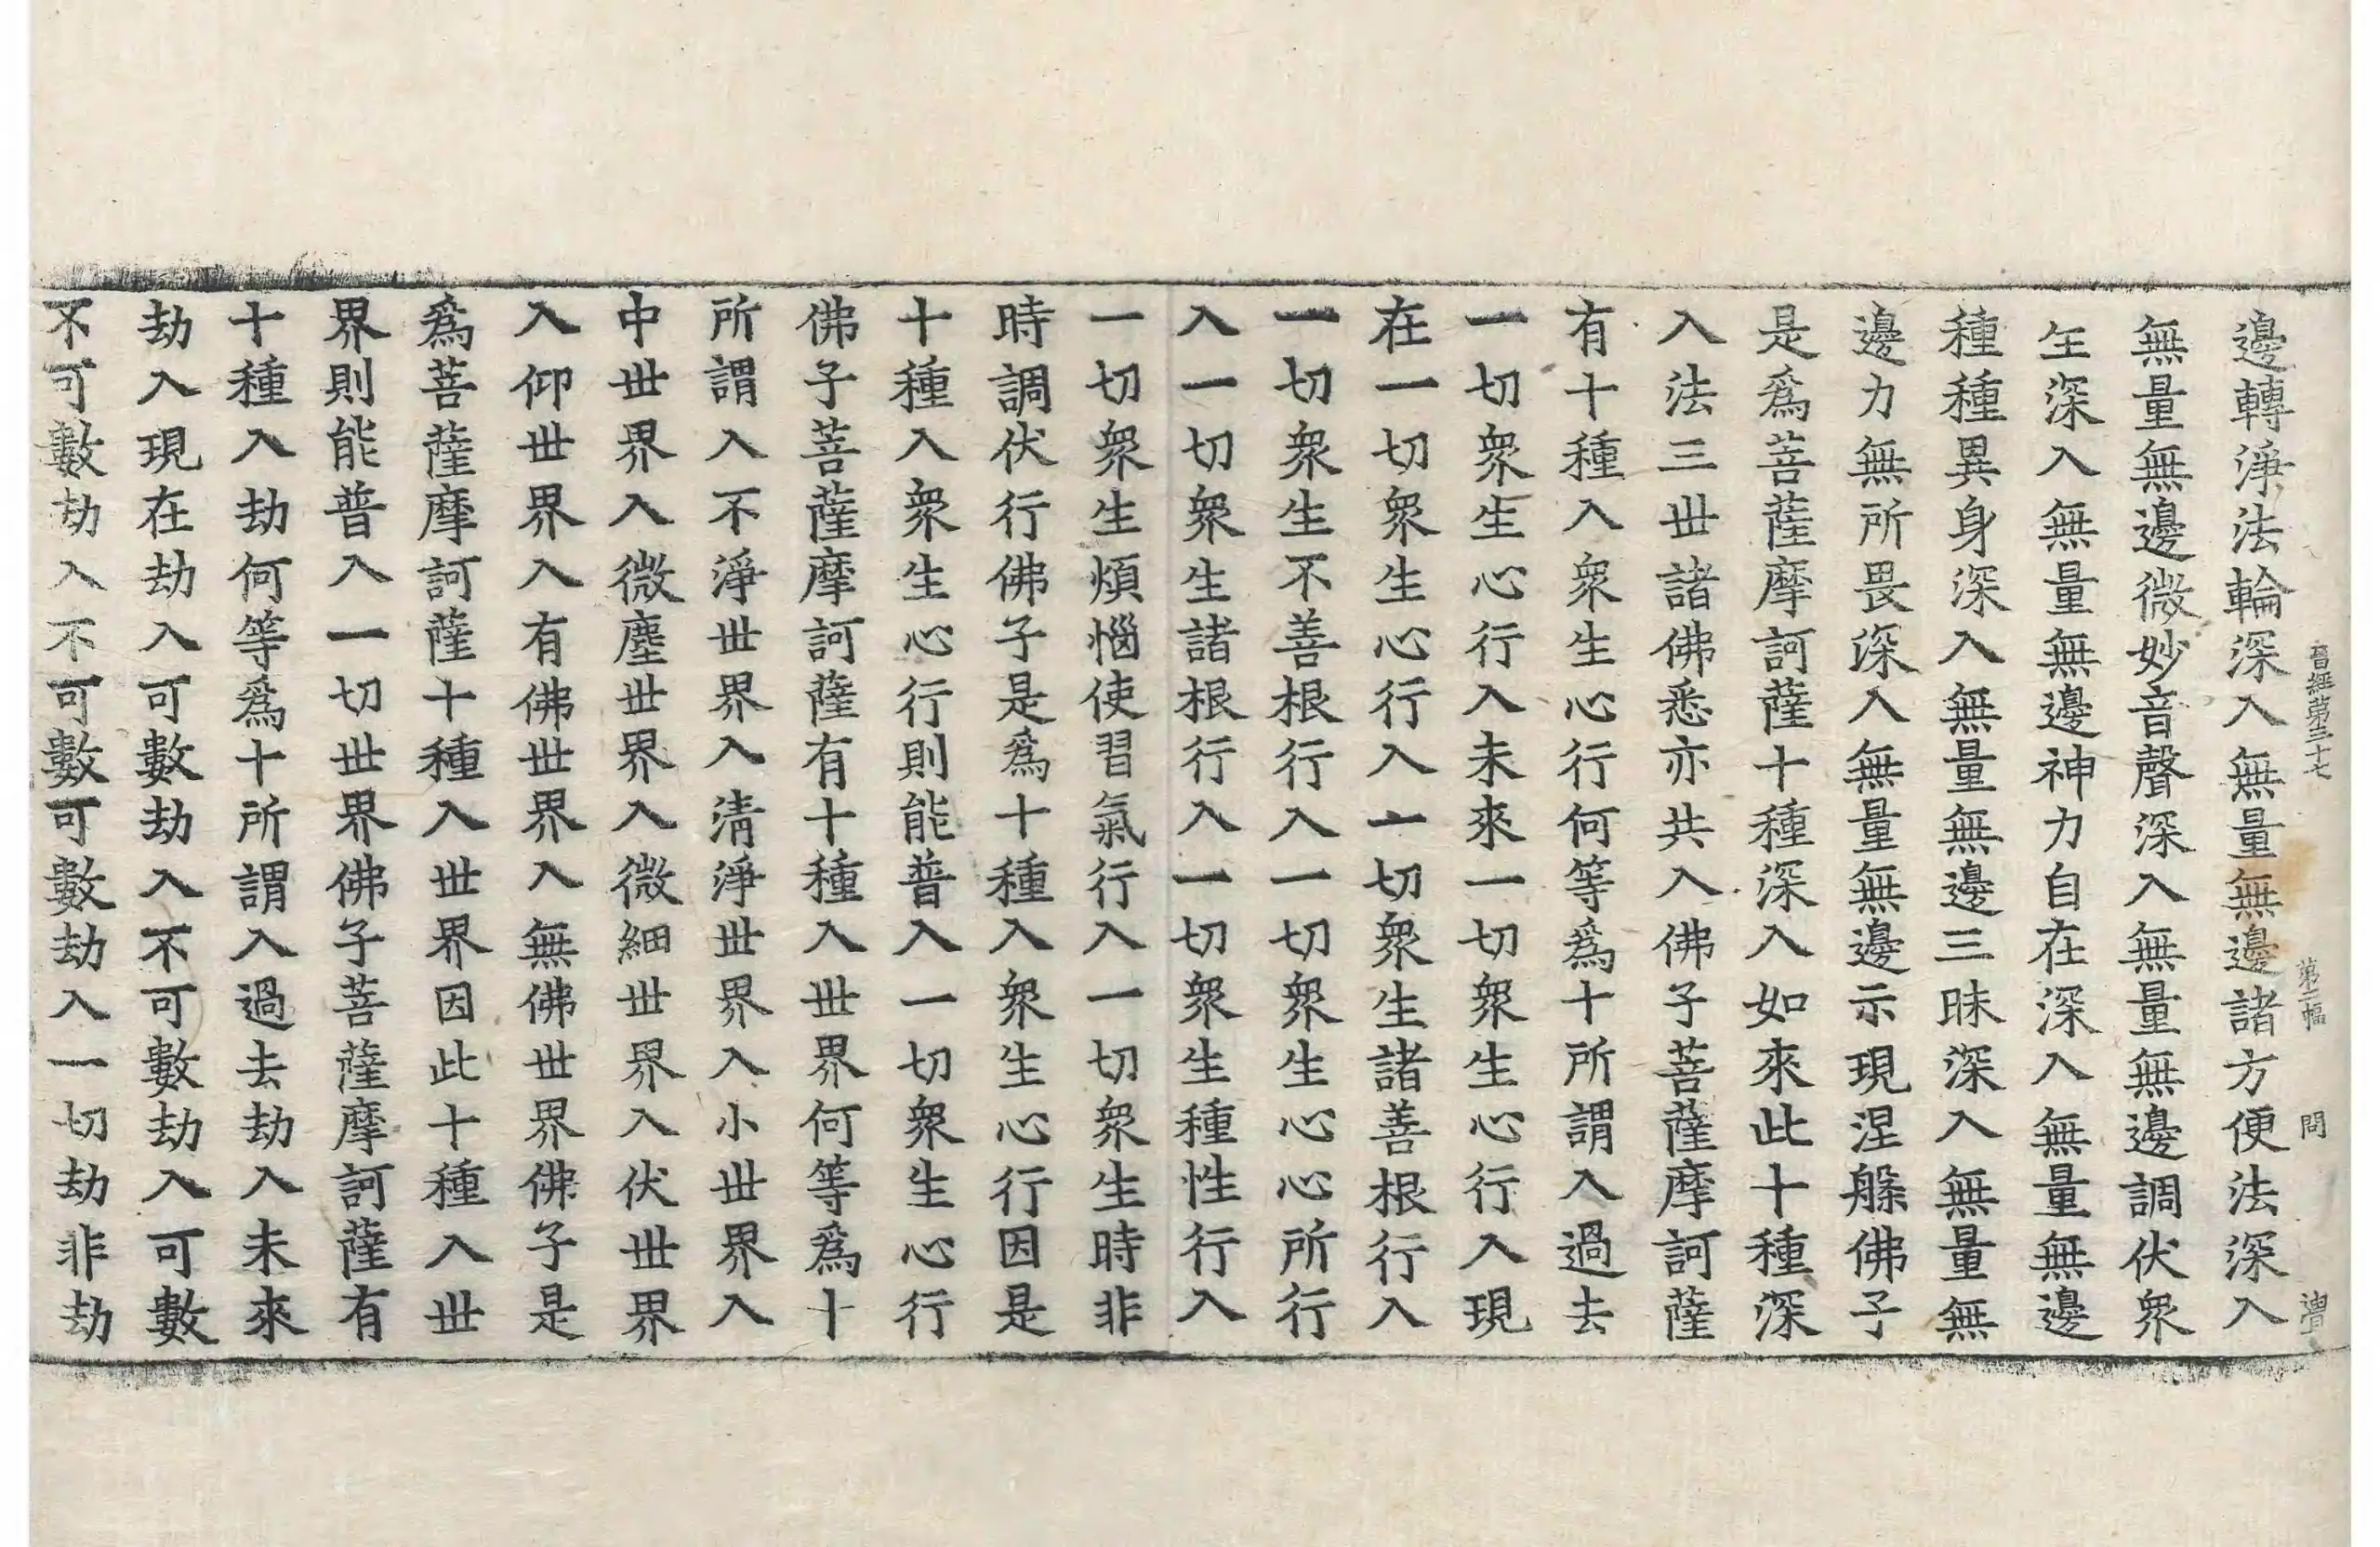 晉經第三十七　第二幅　問
邊轉淨法輪深入無量無邊諸方便法深入
無量無邊微妙音聲深入無量無邊調伏衆
生深入無量無邊神力自在深入無量無邊
種種異身深入無量無邊三昧深入無量無
邊力無所畏深入無量無邊示現涅槃佛子
是爲菩薩摩訶薩十種深入如來此十種深
入法三世諸佛悉亦共入佛子菩薩摩訶薩
有十種入衆生心行何等爲十所謂入過去
一切衆生心行入未來一切衆生心行入現
在一切衆生心行入一切衆生諸善根行入
一切衆生不善根行入一切衆生心心所行
入一切衆生諸根行入一切衆生種性行入
一切衆生煩惱使習氣行入一切衆生時非
時調伏行佛子是爲十種入衆生心行因是
十種入衆生心行則能普入一切衆生心行
佛子菩薩摩訶薩有十種入世界何等爲十
所謂入不淨世界入清淨世界入小世界入
中世界入微塵世界入微細世界入伏世界
入仰世界入有佛世界入無佛世界佛子是
爲菩薩摩訶薩十種入世界因此十種入世
界則能普入一切世界佛子菩薩摩訶薩有
十種入劫何等爲十所謂入過去劫入未來
劫入現在劫入可數劫入不可數劫入可數
不可數劫入不可數可數劫入一切劫非劫